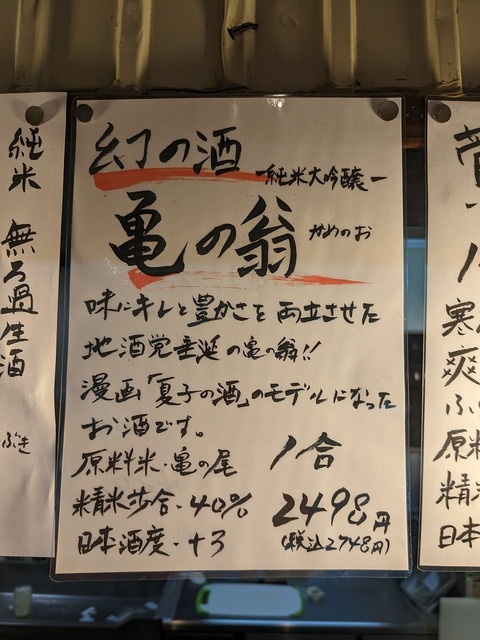 幻の酒
-純米大吟醸-
亀の翁 かめのお
味にキレと豊かさを両立させた
地酒党垂涎の亀の翁!!
漫画「夏子の酒」のモデルになった
お酒です。
原料米・亀の尾
精米歩合・40%
日本酒度・+3
1合
2498円
(税込2748円)
純米 無ろ過生酒